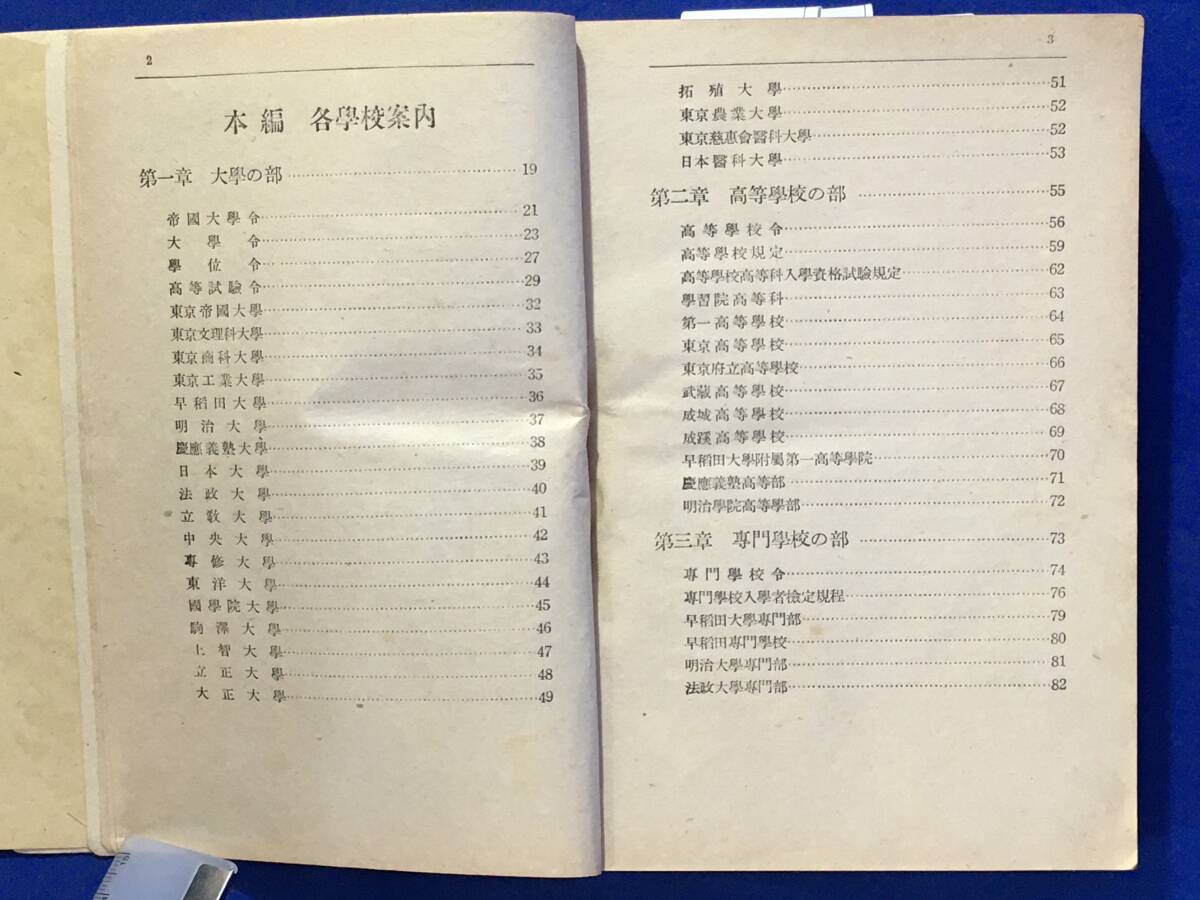 2
本編 各學校案內
第一章 大學の部 19
帝國大學令 21
大學令 23
學位令 27
高等試驗令 29
東京帝國大學 32
東京文理科大學 33
東京商科大學 34
東京工業大學 35
早稻田大學 36
明治大學 37
慶應義塾大學 38
日本大學 39
法政大學 40
立敎大學 41
中央大學 42
專修大學 43
東洋大學 44
國學院大學 45
駒澤大學 46
上智大學 47
立正大學 48
大正大學 49
3
拓殖大學 51
東京農業大學 52
東京慈惠會醫科大學 52
日本醫科大學 53
第二章 高等學校の部 55
高等學校令 56
高等學校規定 59
高等學校高等科入學資格試驗規定 62
學習院高等科 63
第一高等學校 64
東京高等學校 65
東京府立高等學校 66
武藏高等學校 67
成城高等學校 68
成蹊高等學校 69
早稻田大學附屬第一高等學院 70
慶應義塾高等部 71
明治學院高等學部 72
第三章 專門學校の部 73
專門學校令 74
專門學校入學者檢定規程 76
早稻田大學專門部 79
早稻田專門學校 80
明治大學專門部 81
法政大學專門部 82